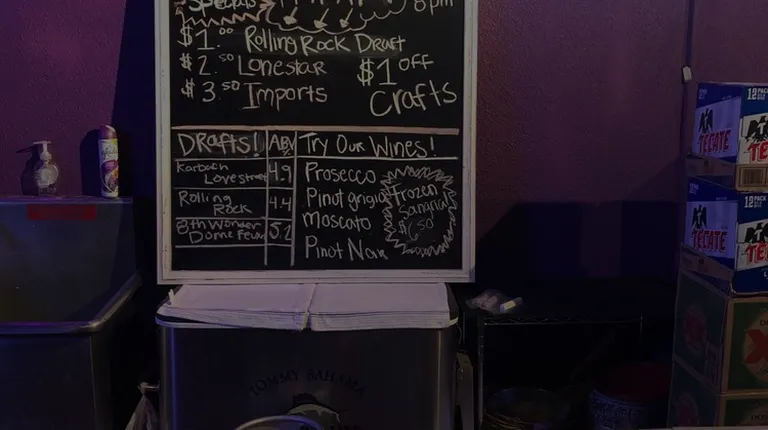 Specials
8pm
$1.00 Rolling Rock Draft
$2.50 Lonestar
$3.50 Imports
$1 OFF
Crafts
Drafts! ABV
Karbach
Lovestreet 4.9
Rolling
Rock 4.4
8th Wonder
Dome Feaux 5.1
Try Our Wines!
Prosecco
Pinot grigio
moscato
Pinot Noir
Frozen
Sangria
TOMMY BAHAMA
12 PACK
TECATE
TE
12 PACK
TECATE
TE